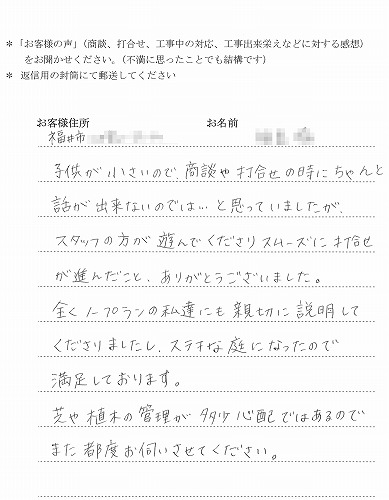 ＊「お客様の声」（商談、打合せ、工事中の対応、工事出来栄えなどに対する感想）
をお聞かせください。（不満に思ったことでも結構です）
＊ 返信用の封筒にて郵送してください
お客様住所 お名前
福井市
子供が小さいので、商談や打合せの時にちゃんと
話が出来ないのでは…と思っていましたが、
スタッフの方が遊んでくださりスムーズに打合せ
が進んだこと、ありがとうございました。
全くノープランの私達にも親切に説明して
くださりましたし、ステキな庭になったので
満足しております。
芝や植木の管理が多少心配ではあるので
また都度お伺いさせてください。